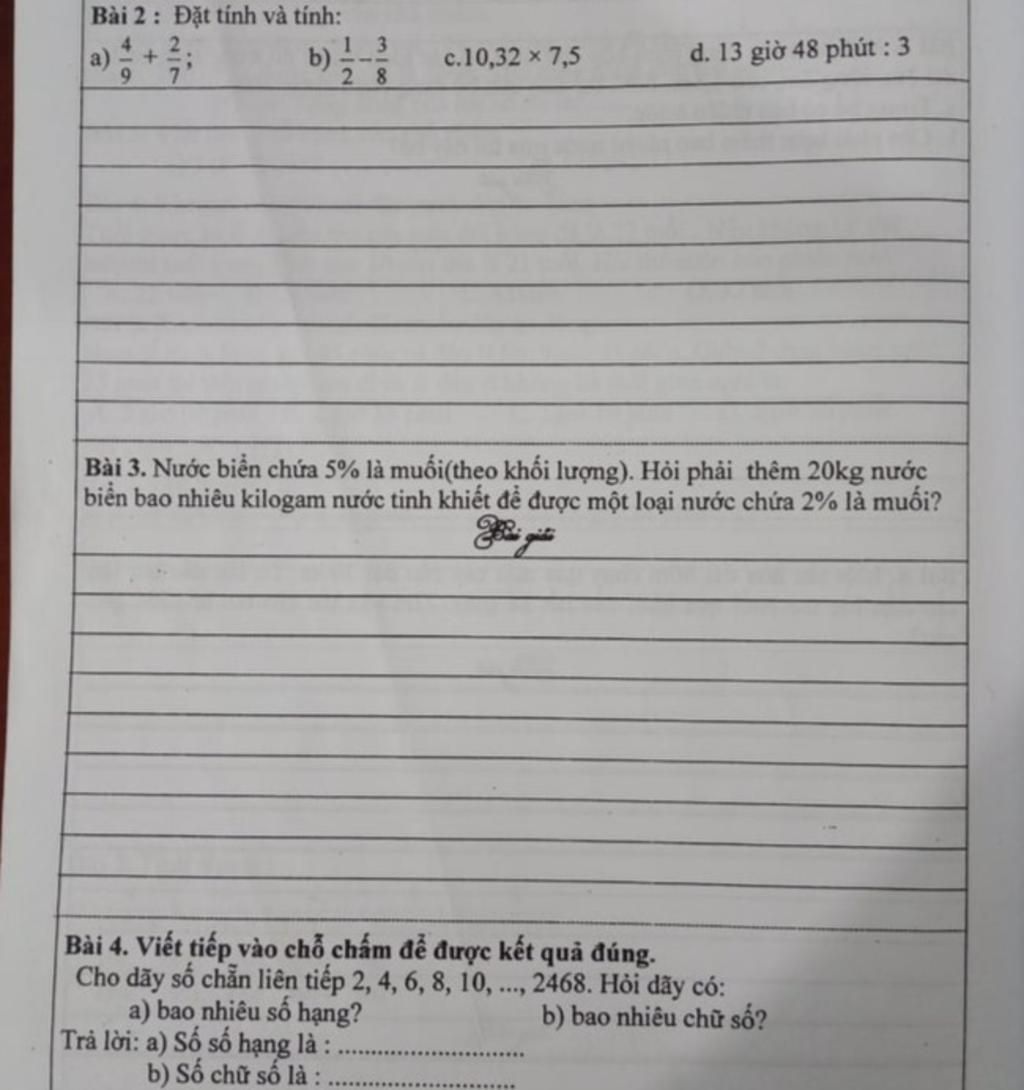 Bài 2 : Đặt tính và tính:
a) 4/9 + 2/7; b) 1/2 − 3/8 c.10,32 × 7,5 d. 13 giờ 48 phút : 3
Bài 3. Nước biển chứa 5% là muối(theo khối lượng). Hỏi phải thêm 20kg nước
biển bao nhiêu kilogam nước tinh khiết để được một loại nước chứa 2% là muối?
Bài giải
Bài 4. Viết tiếp vào chỗ chấm để được kết quả đúng.
Cho dãy số chẵn liên tiếp 2, 4, 6, 8, 10, ..., 2468. Hỏi dãy có:
a) bao nhiêu số hạng? b) bao nhiêu chữ số?
Trả lời: a) Số số hạng là : ..............................
b) Số chữ số là : ..............................